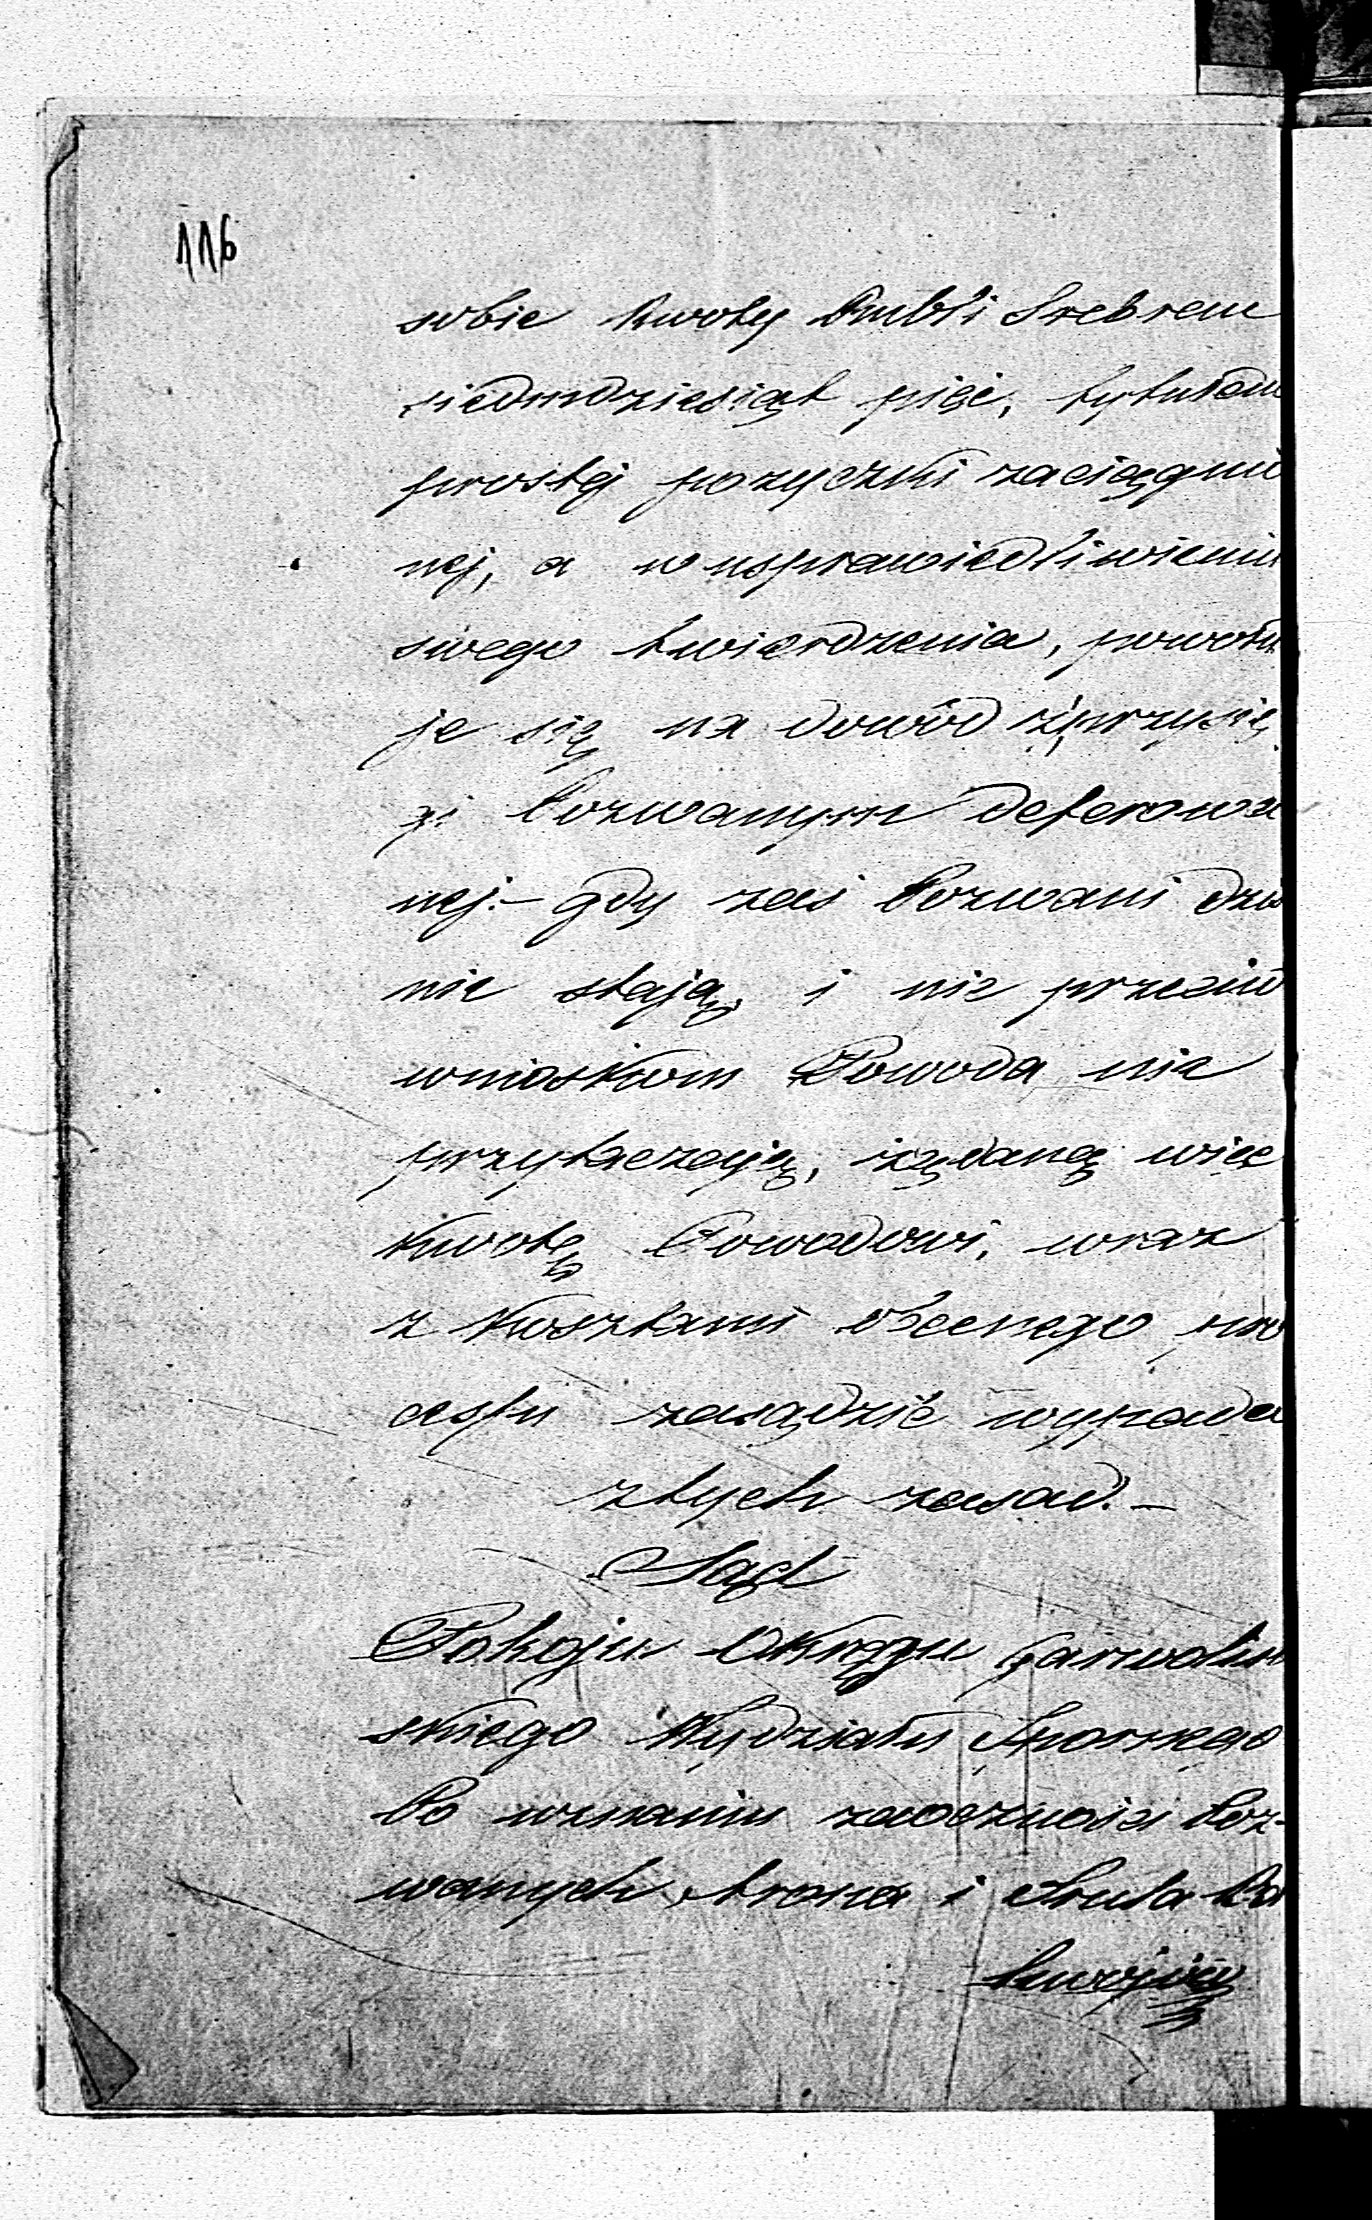 116
sobie kwoty Rubli Srebrem
siedmdziesiąt pięć, tytułem
prostej pożyczki zaciągnio
nej, a w usprawiedliwieniu
swego twierdzenia, powołu
je się na dowód z przysię
gi Pozwanym deferowa
nej.– gdy zaś Pozwani dziś
nie stają, i nic przeciw
wnioskom Powoda nie
przytaczają, żądaną więc
kwotę Powodowi, wraz
z kosztami obecnego pro
cessu zasądzić wypada
z tych zasad.–
Sąd
Pokoju Okręgu Garwoliń
skiego Wydziału Spornego
Po uznaniu zaoczności Poz-
wanych Arona i Srula